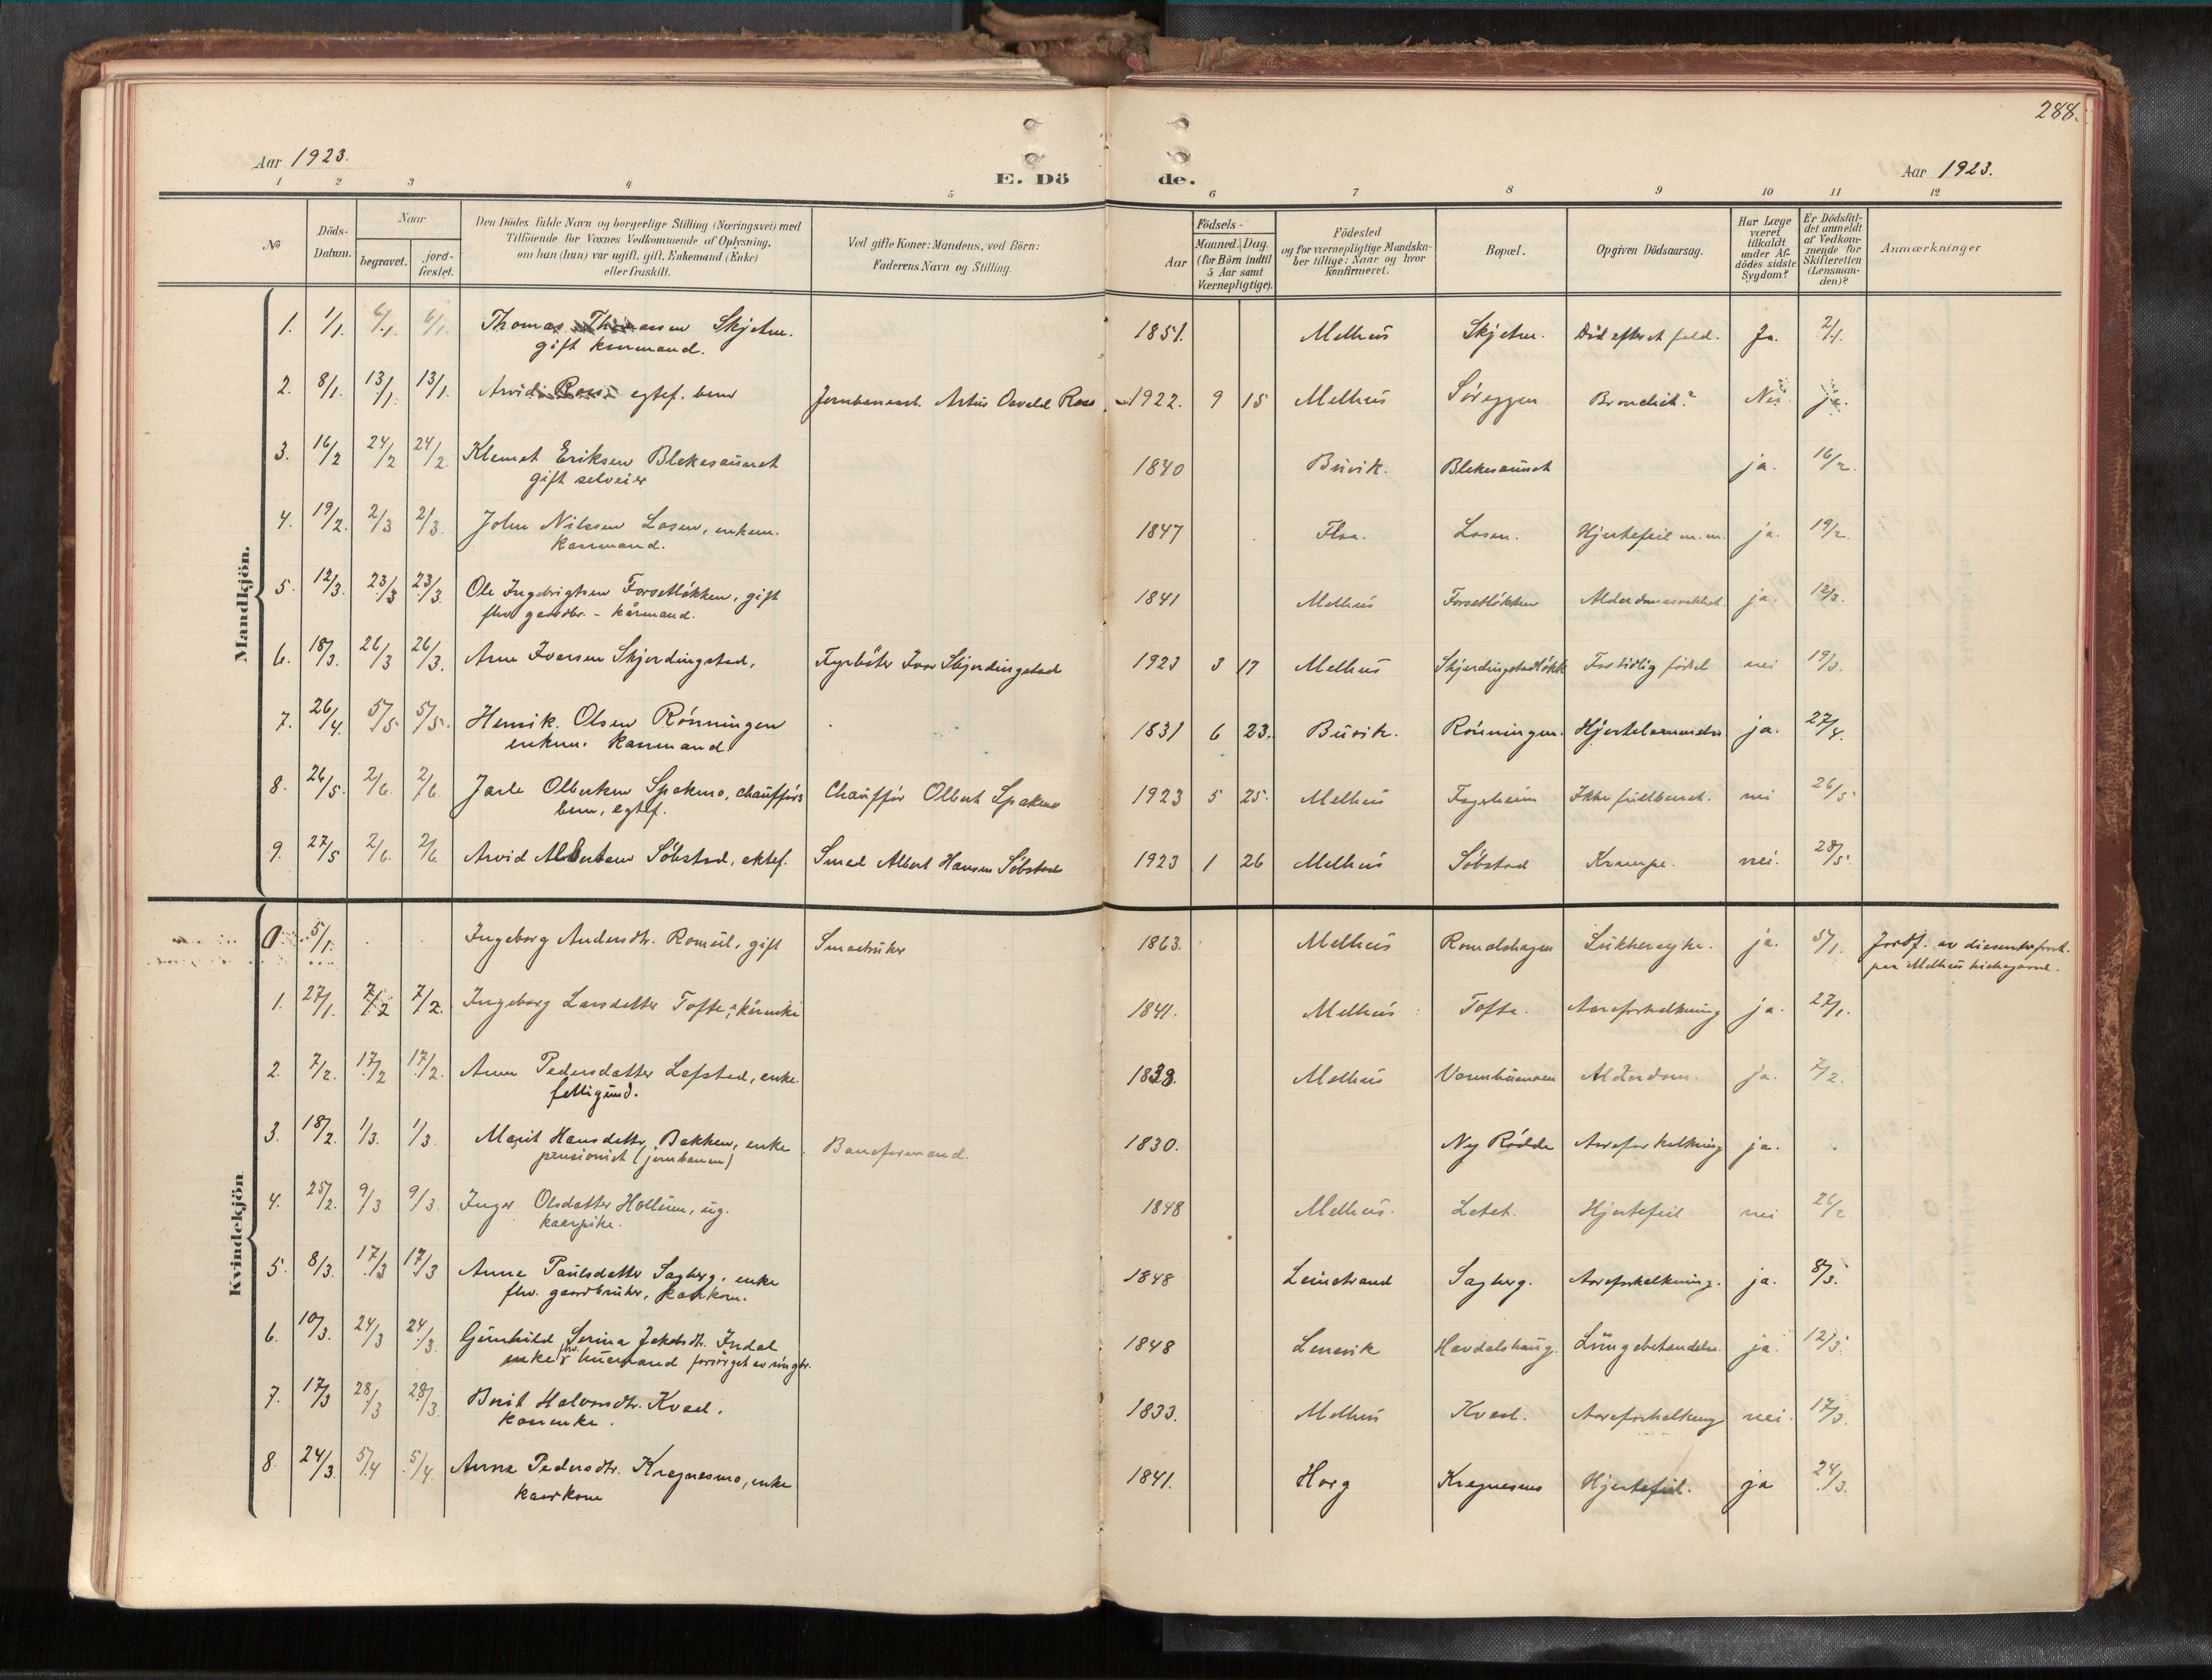 288.
Aar 1923.
E. Döde.
Aar 1923.
1 2 3 4 5 6 7 8 9 10 11 12
№
Döds-Datum.
Naar
begravet.
jord-fæstet.
Den Dödes fulde Navn og borgerlige Stilling (Næringsvei) med
Tilföiende for Voxnes Vedkommende af Oplysning,
om han (hun) var ugift, gift, Enkemand (Enke)
eller fraskilt.
Ved gifte Koner: Mandens, ved Börn:
Faderens Navn og Stilling.
Födsels-
Aar
Maaned. Dag.
(for Börn indtil
5 Aar samt
Værnepligtige).
Födested
og for værnepligtige Mandska-
ber tillige: Naar og hvor
konfirmeret.
Bopæl.
Opgiven Dödsaarsag.
Har Læge
været
tilkaldt
under Af-
dödes sidste
Sygdom?
Er Dödsfal-
det anmeldt
af Vedkom-
mende for
Skifteretten
(Lensman-
den)?
Anmærkninger
Mandkjön.
1. 1/1. 6/1. 6/1. Thomas Thomassen Skjetn. 1851. Melhus Skjetn. Död efter et fald. Ja. 2/1.
gift kaarmand.
2. 8/1. 13/1. 13/1. Arvid Ross egtef. barn Artur Osvald Ross 1922. 9 15 Melhus Söreggen Bronchit? Nei. ja.
3. 16/2 24/2 24/2. Klemet Eriksen Blekesaunet 1840 Buvik. Blekesaunet ja. 16/2.
gift selveier
4. 19/2. 2/3 2/3. John Nilssen Losen, enkem. 1847 Flaa. Losen. Hjertefeil m.m. ja. 19/2.
kaarmand.
5. 12/3. 23/3 23/3. Ole Ingebrigtsen Forsetlökken, gift 1841 Melhus Forsetlökken Alderdomssvakhet ja. 12/3.
fhv gaardbr. - kårmand.
6. 18/3. 26/3 26/3. Arne Iversen Skjerdingstad, Fyrböter Ivar Skjerdingstad 1923 3 17 Melhus Skjerdingstadlökk For tidlig födsel nei 19/3.
7. 26/4. 5/5 5/5. Henrik Olsen Rönningen 1831 6 23. Buvik. Rönningen. Hjertelammelse ja. 27/4.
enkem. kaarmand
8. 26/5. 2/6. 2/6 Jarle Olbertsen Spakmo, chaufförs Chaufför Olbert Spakmo 1923 5 25. Melhus Fagerheim Ikke fuldbaaret. nei 26/5
barn, egtef.
9. 27/5 2/6. 2/6 Arvid Albertsen Söbstad, ektef. Smed Albert Hansen Söbstad 1923 1 26 Melhus Söbstad Krampe. nei. 28/5.
Kvindekjön
0. 5/1. Ingeborg Andersdtr. Romul, gift Smaabruker 1863. Melhus Romolshagen Sukkersyke. ja. 5/1. Jordf. av dissenterforst.
paa Melhus kirkegaard.
1. 27/1. 7/2 7/2. Ingeborg Larsdatter Tofte, kårenke 1841. Melhus Tofte. Aareforkalkning ja. 27/1.
2. 7/2. 17/2 17/2. Anne Pedersdatter Lefstad, enke. 1839. Melhus Varmbumoen Alderdom. ja. 7/2.
fattigund.
3. 18/2. 1/3. 1/3 Marit Hansdatter Bakken, enke Baneformand. 1830. Ny Rödde Aareforkalkning ja.
pensionist (jernbanen)
4. 25/2. 9/3 9/3. Inger Olsdatter Hollum, ug. 1848 Melhus. Letet. Hjertefeil nei 26/2
kaarpike.
5. 8/3. 17/3 17/3 Anne Paulsdatter Sagberg, enke 1848 Leinstrand Sagberg. Aareforkalkning. ja. 8/3.
fhv. gaardbruker, kaarkone.
6. 10/3. 24/3 24/3. Gunhild Serina Jakobsdtr. Indal 1848 Lensvik Havdalshaug. Lungebetændelse. ja. 12/3.
enke fhv. husmand forsörget av
7. 17/3 28/3 28/3. Berit Halvorsdtr. Kvaal. 1833. Melhus Kvaal. Aareforkalkning nei. 17/3.
kaarenke.
8. 24/3. 5/4 5/4. Anne Pedersdtr. Kregnesmo, enke 1841. Horg Kregnesmo Hjertefeil. ja 24/3.
kaarkone